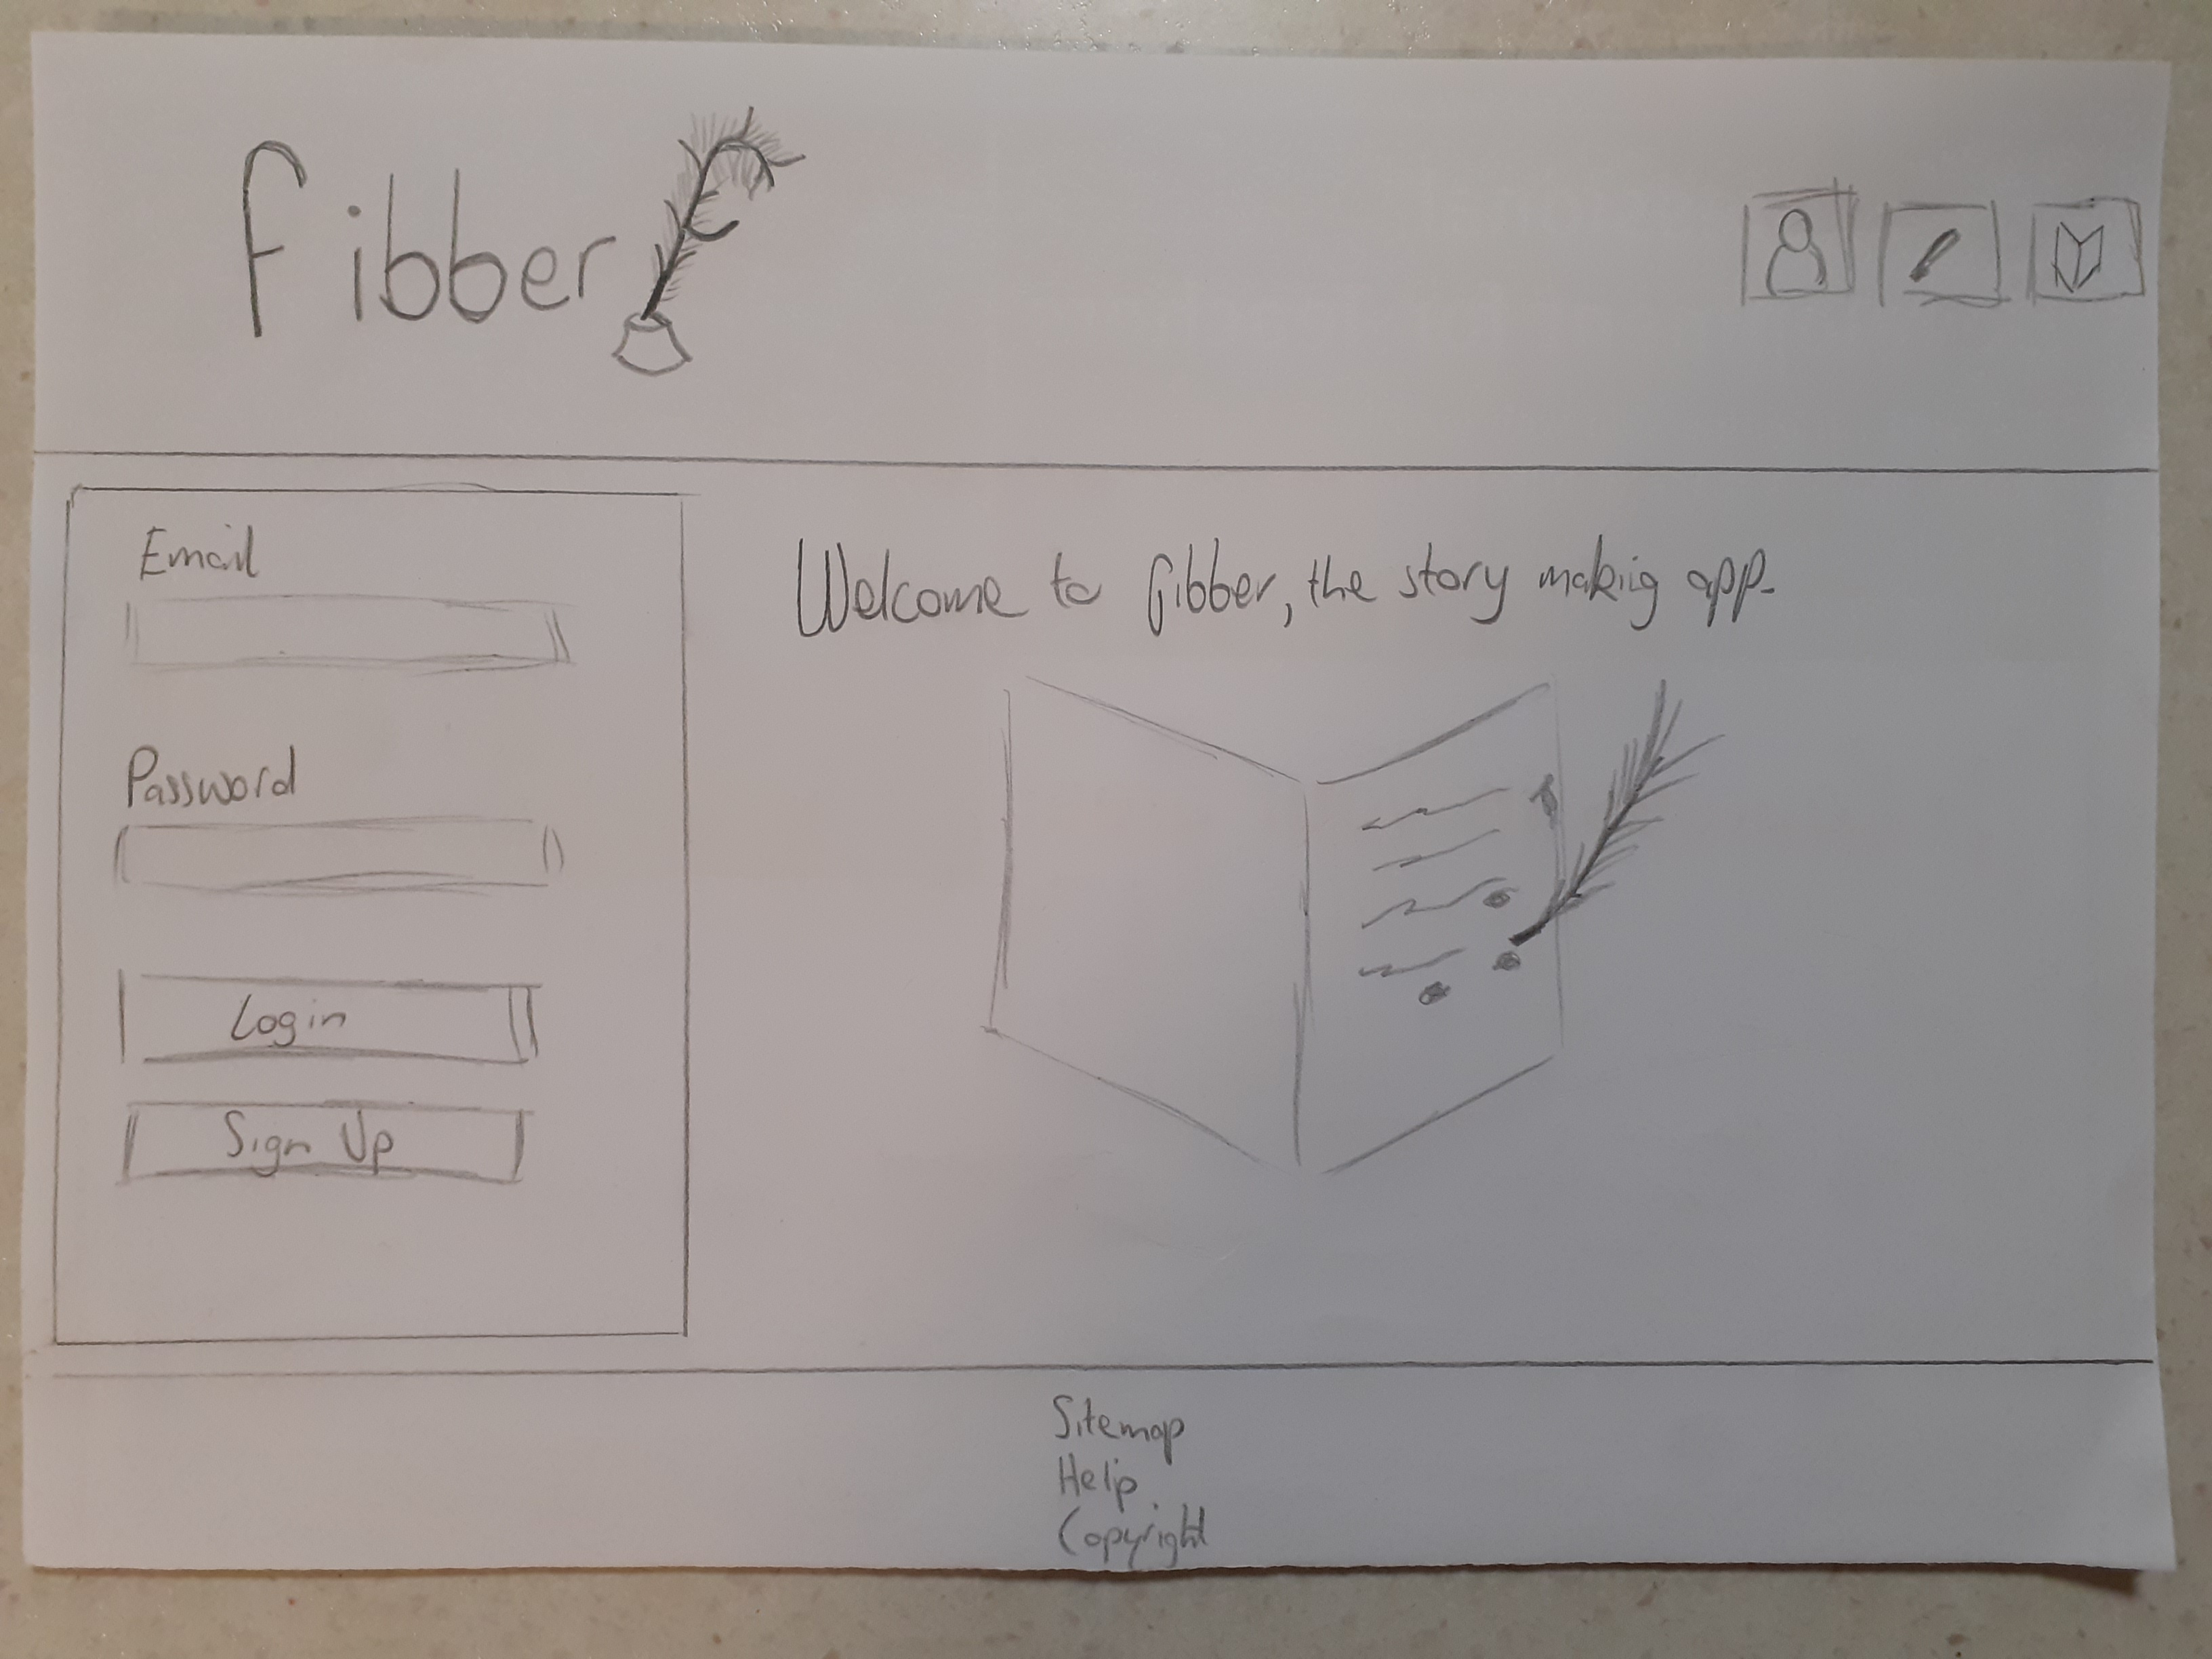 Fibber
Email
Password
Login
Sign Up
Welcome to fibber, the story making app.
Sitemap
Help
Copyright